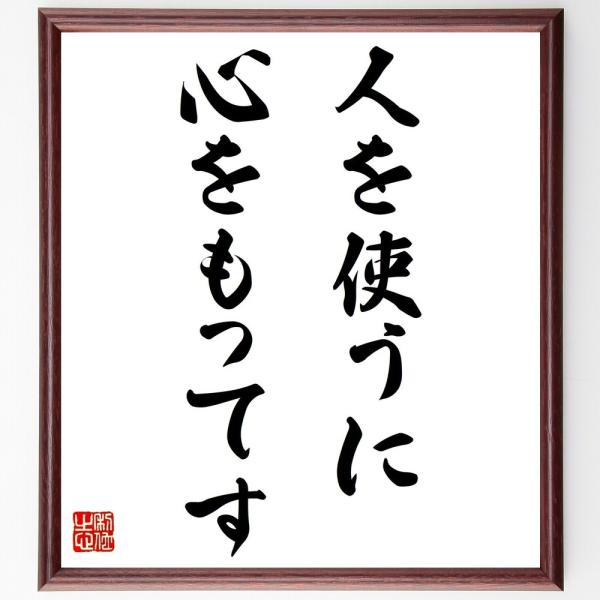 人を使うに
心をもってす